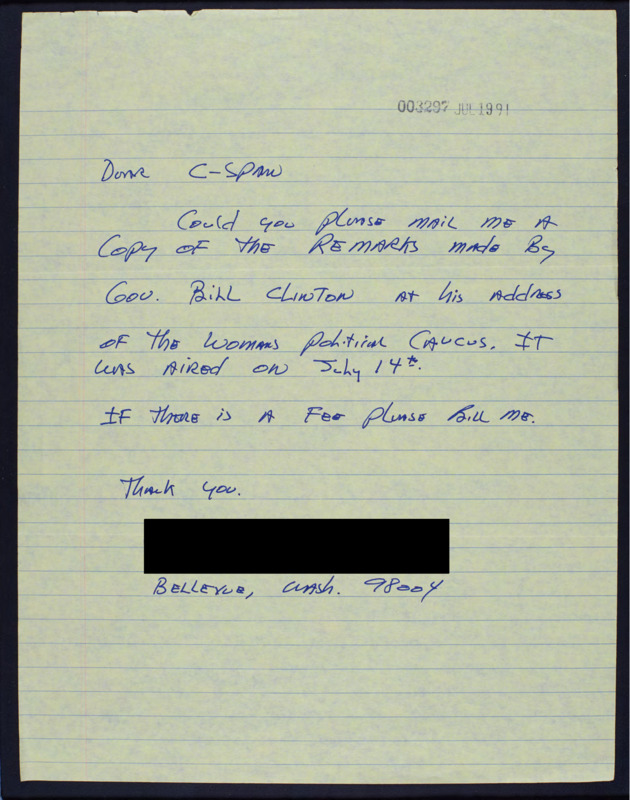 003297 JUL 1991
Dear C-SPAN
Could you please mail me a
Copy of the REMARKS made By
Gov. Bill CLINTON at his address
of the Womans political CAUCUS. IT
was aired on July 14th.
IF there is a Fee please Bill me.
Thank you.
BELLEVUE, Wash. 98004